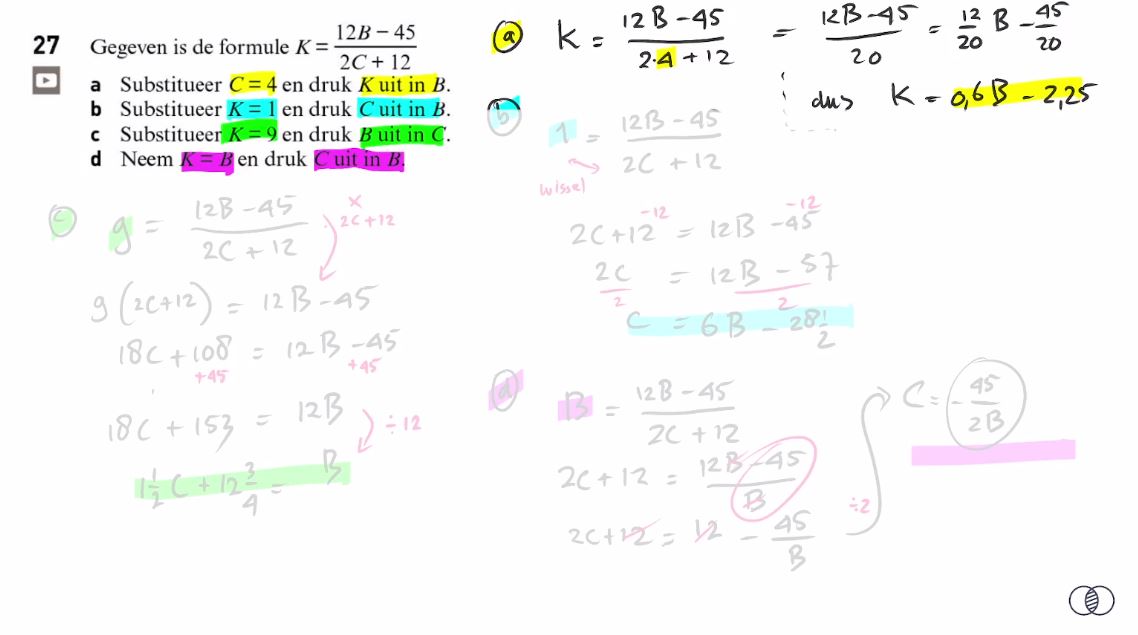 27 Gegeven is de formule K = (12B − 45)/(2C + 12)
a Substitueer C = 4 en druk K uit in B.
b Substitueer K = 1 en druk C uit in B.
c Substitueer K = 9 en druk B uit in C.
d Neem K = B en druk C uit in B.
a K = (12B − 45)/(2·4 + 12) = (12B − 45)/20 = 12/20 B − 45/20
dus K = 0,6B − 2,25
b 1 = (12B − 45)/(2C + 12)
wissel
2C + 12 −12 = 12B − 45 −12
2C/2 = (12B − 57)/2
C = 6B − 28 1/2
c 9 = (12B − 45)/(2C + 12) × 2C + 12
9(2C + 12) = 12B − 45
18C + 108 = 12B − 45
+45 +45
18C + 153 = 12B ÷12
1 1/2 C + 12 3/4 = B
d B = (12B − 45)/(2C + 12)
2C + 12 = (12B − 45)/B
2C + 12 = 12 − 45/B
÷2
C = − 45/2B